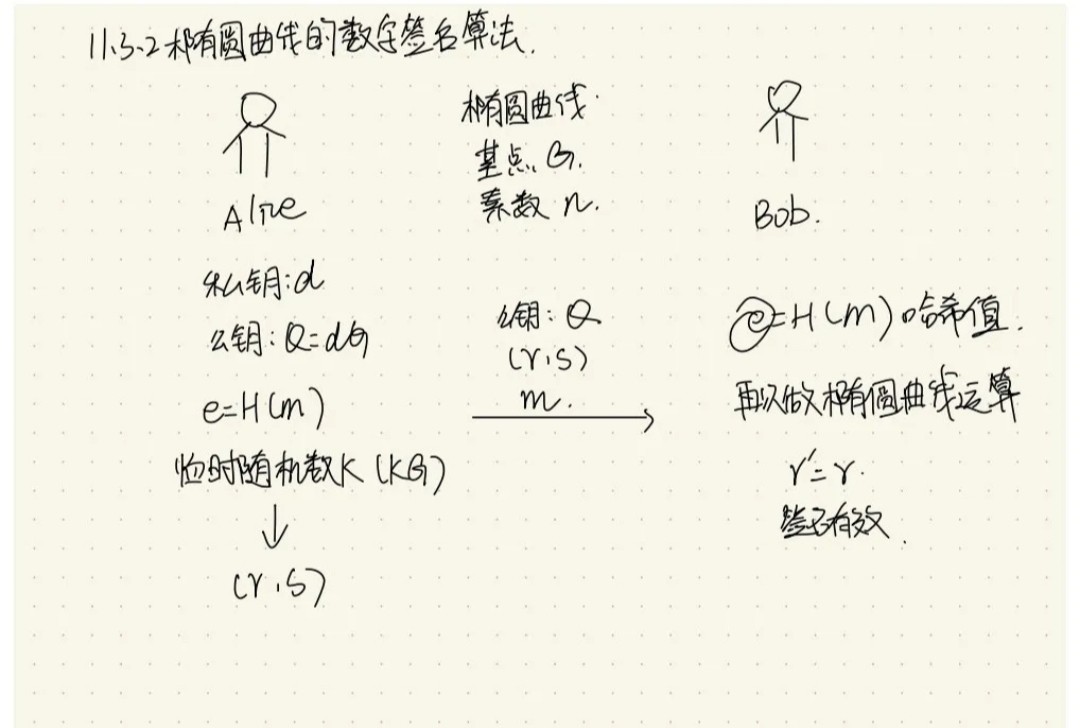 11.3.2 椭圆曲线的数字签名算法.
椭圆曲线
基点 G.
素数 n.
Alice
Bob.
私钥:d
公钥:Q=dG
e=H(m)
临时随机数K (KG)
(r,s)
公钥:Q
(r,s)
m.
e=H(m) 哈希值.
再次做椭圆曲线运算
r'=r.
签名有效.